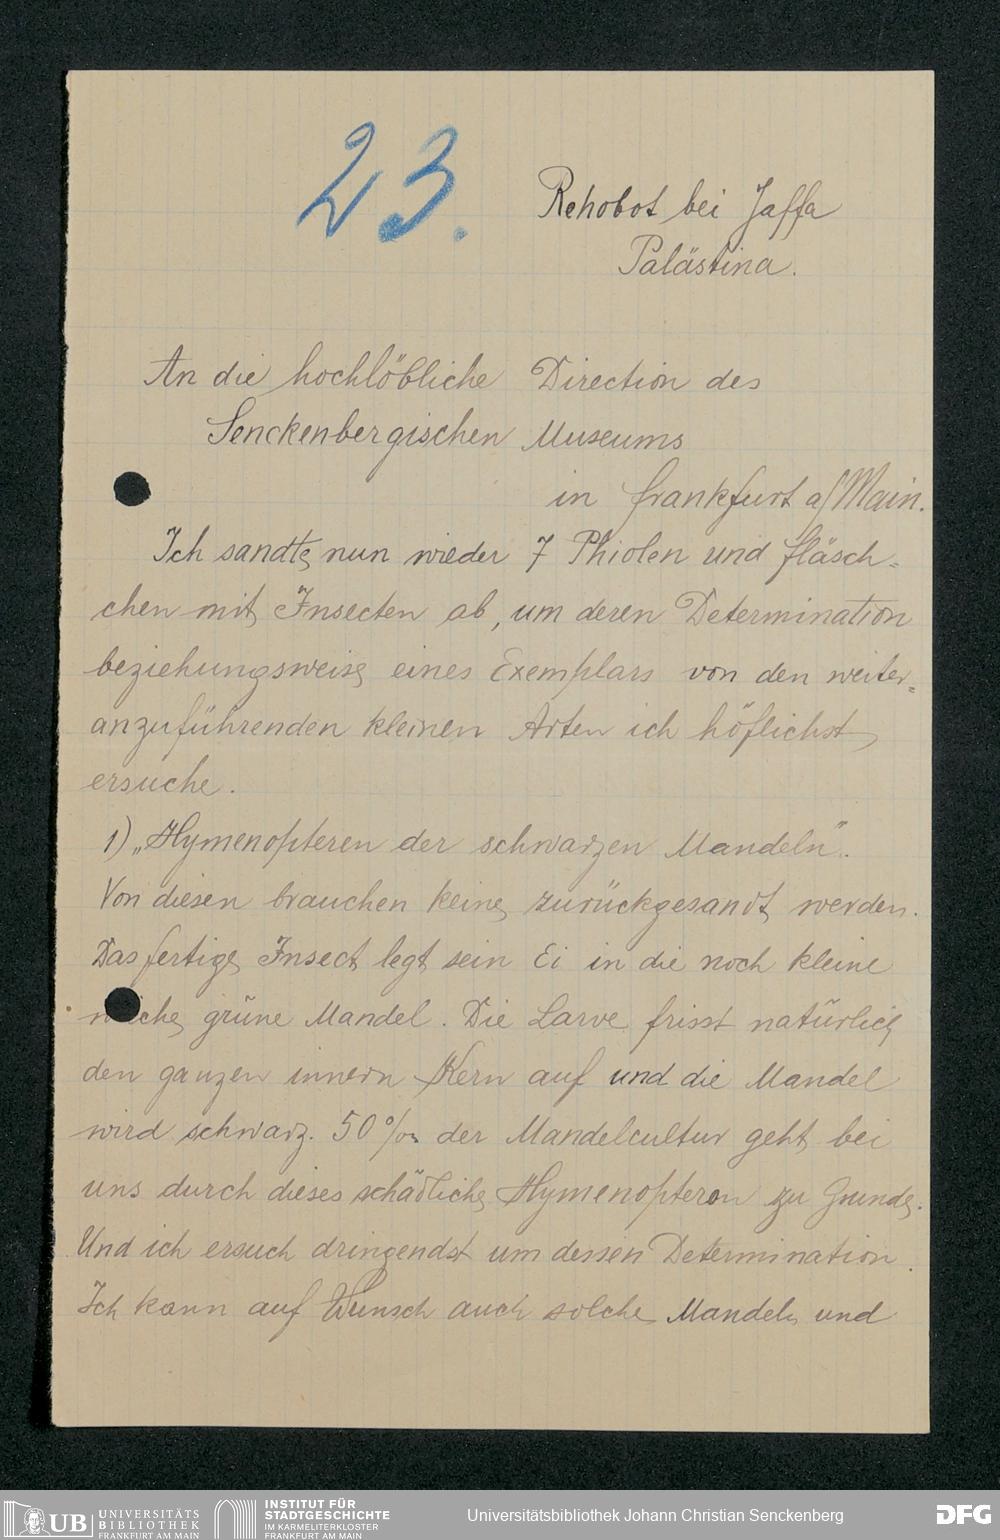 23.
Rehobot bei Jaffa
Palästina.
An die hochlöbliche Direction des
Senckenbergischen Museums
in Frankfurt a/Main.
Ich sandte nun wieder 7 Phiolen und Fläsch-
chen mit Insecten ab, um deren Determination
beziehungsweise eines Exemplars von den weiter=
anzuführenden kleinen Arten ich höflichst
ersuche.
1) „Hymenopteren der schwarzen Mandeln“.
Von diesen brauchen keine zurückgesandt werden.
Das fertige Insect legt sein Ei in die noch kleine
weiche grüne Mandel. Die Larve frisst natürlich
den ganzen innern Kern auf und die Mandel
wird schwarz. 50% der Mandelcultur geht bei
uns durch dieses schädliche Hymenopteron zu Grunde.
Und ich ersuch dringendst um dessen Determination.
Ich kann auf Wunsch auch solche Mandeln und
UB UNIVERSITÄTS
BIBLIOTHEK
FRANKFURT AM MAIN
INSTITUT FÜR
STADTGESCHICHTE
IM KARMELITERKLOSTER
FRANKFURT AM MAIN
Universitätsbibliothek Johann Christian Senckenberg
DFG